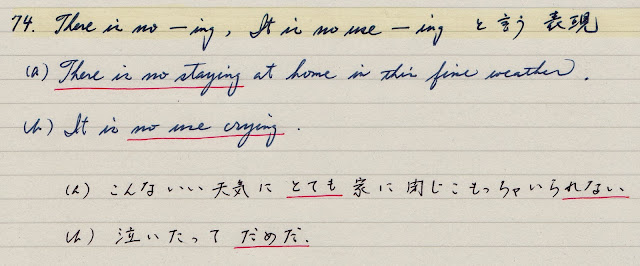 74. There is no —ing, It is no use —ing と言う表現
(a) There is no staying at home in this fine weather.
(b) It is no use crying.
(a) こんないい天気にとても家に閉じこもっちゃいられない.
(b) 泣いたってだめだ.